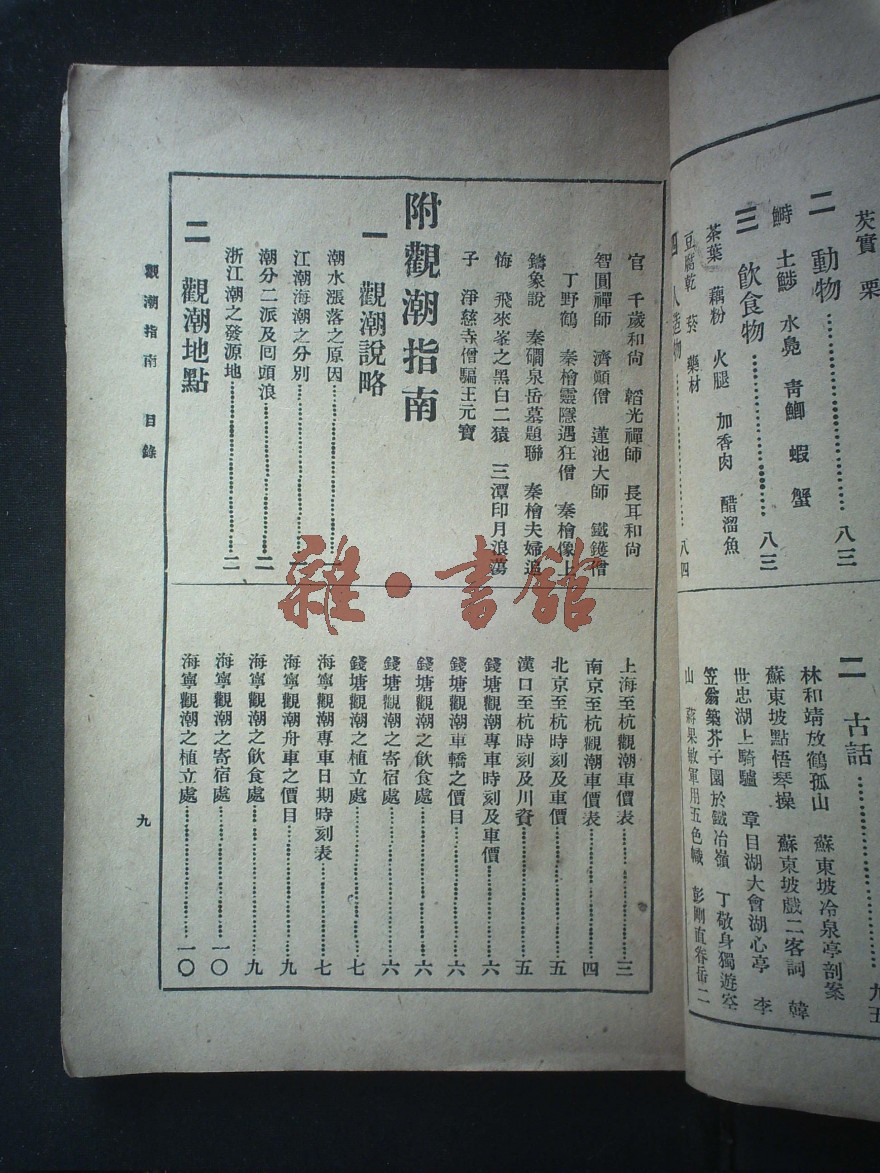 芡實　栗
二　動物…………八三
鰣　土鯋　水鳧　青鯽　蝦　蟹
三　飲食物…………八三
茶葉　藕粉　火腿　加香肉　醋溜魚
豆腐乾　菸　藥材
四　人造物…………八四
二　古話…………九五
林和靖放鶴孤山　蘇東坡冷泉亭剖案
蘇東坡點悟琴操　蘇東坡戲二客詞　韓
世忠湖上騎驢　章目湖大會湖心亭　李
笠翁築芥子園於鐵冶嶺　丁敬身獨遊空
山　蔣果敏軍用五色幟　彭剛直春岳二
官　千歲和尙　韜光禪師　長耳和尙
智圓禪師　濟顚僧　蓮池大師　鐵鑊僧
丁野鶴　秦檜靈隱遇狂僧　秦檜像上
鑄象說　秦磵泉岳墓題聯　秦檜夫婦追
悔　飛來峯之黑白二猿　三潭印月浪蕩
子　淨慈寺僧騙王元寶
附觀潮指南
一　觀潮說略
潮水漲落之原因…………一
江潮海潮之分別…………一
潮分二派及囘頭浪…………二
浙江潮之發源地…………二
二　觀潮地點
上海至杭觀潮車價表…………三
南京至杭觀潮車價表…………四
北京至杭時刻及車價…………五
漢口至杭時刻及川資…………五
錢塘觀潮專車時刻及車價…………六
錢塘觀潮車轎之價目…………六
錢塘觀潮之飮食處…………六
錢塘觀潮之寄宿處…………六
錢塘觀潮之植立處…………七
海寧觀潮專車日期時刻表…………七
海寧觀潮舟車之價目…………九
海寧觀潮之飮食處…………九
海寧觀潮之寄宿處…………一〇
海寧觀潮之植立處…………一〇
觀潮指南　目錄
九
雜·書館